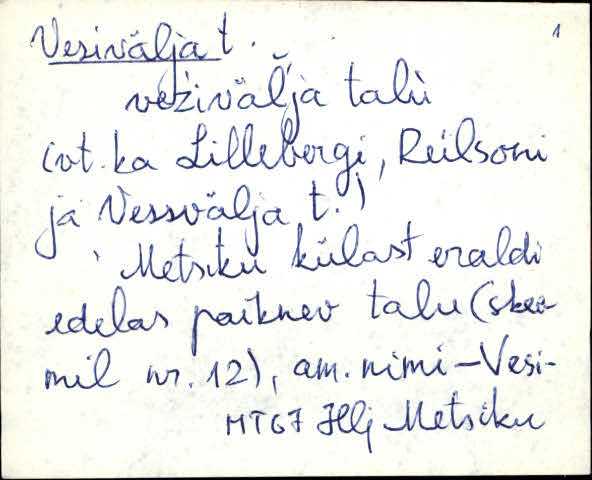 Vesivälja t. 1
veźiväĺja talù
(vt. ka Lillebergi, Reilsoni
ja Vessvälja t.)
Metsiku külast eraldi
edelas paiknev talu (skee-
mil nr. 12), am. nimi – Vesi-
MT67 Hlj Metsiku